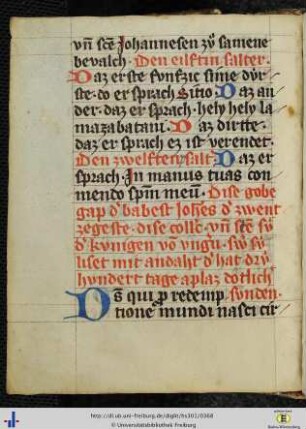 vn̄ sc̄e Johannesen zv̊ samene
bevalch. Den eilftin salter.
Daz erste fvnfzic sime dvr
ste. do er sprach Sitio. Daz an
der. daz er sprach. hely hely la
mazabatani. Daz dirtte.
daz er sprach ez ist verendet.
Den zwelften salt̄. Daz er
sprach. In manus tuas con
mendo sp̄m meū. Dise gobe
gap d̓ babest Joh̄es d̓ zwent
zegeste. dise coll̄e. vn̄ sc̄e
d̓ kvnigen vō vngu̓.
liset mit andaht d̓ hat
hundert tage aplaz dotlich̓
Ds̄ qui p̱ redemp. svnden.
tione mundi nasci cir
http://dl.ub.uni-freiburg.de/diglit/hs301/0368
© Universitätsbibliothek Freiburg